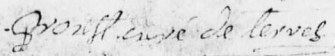 Proust curé de terves